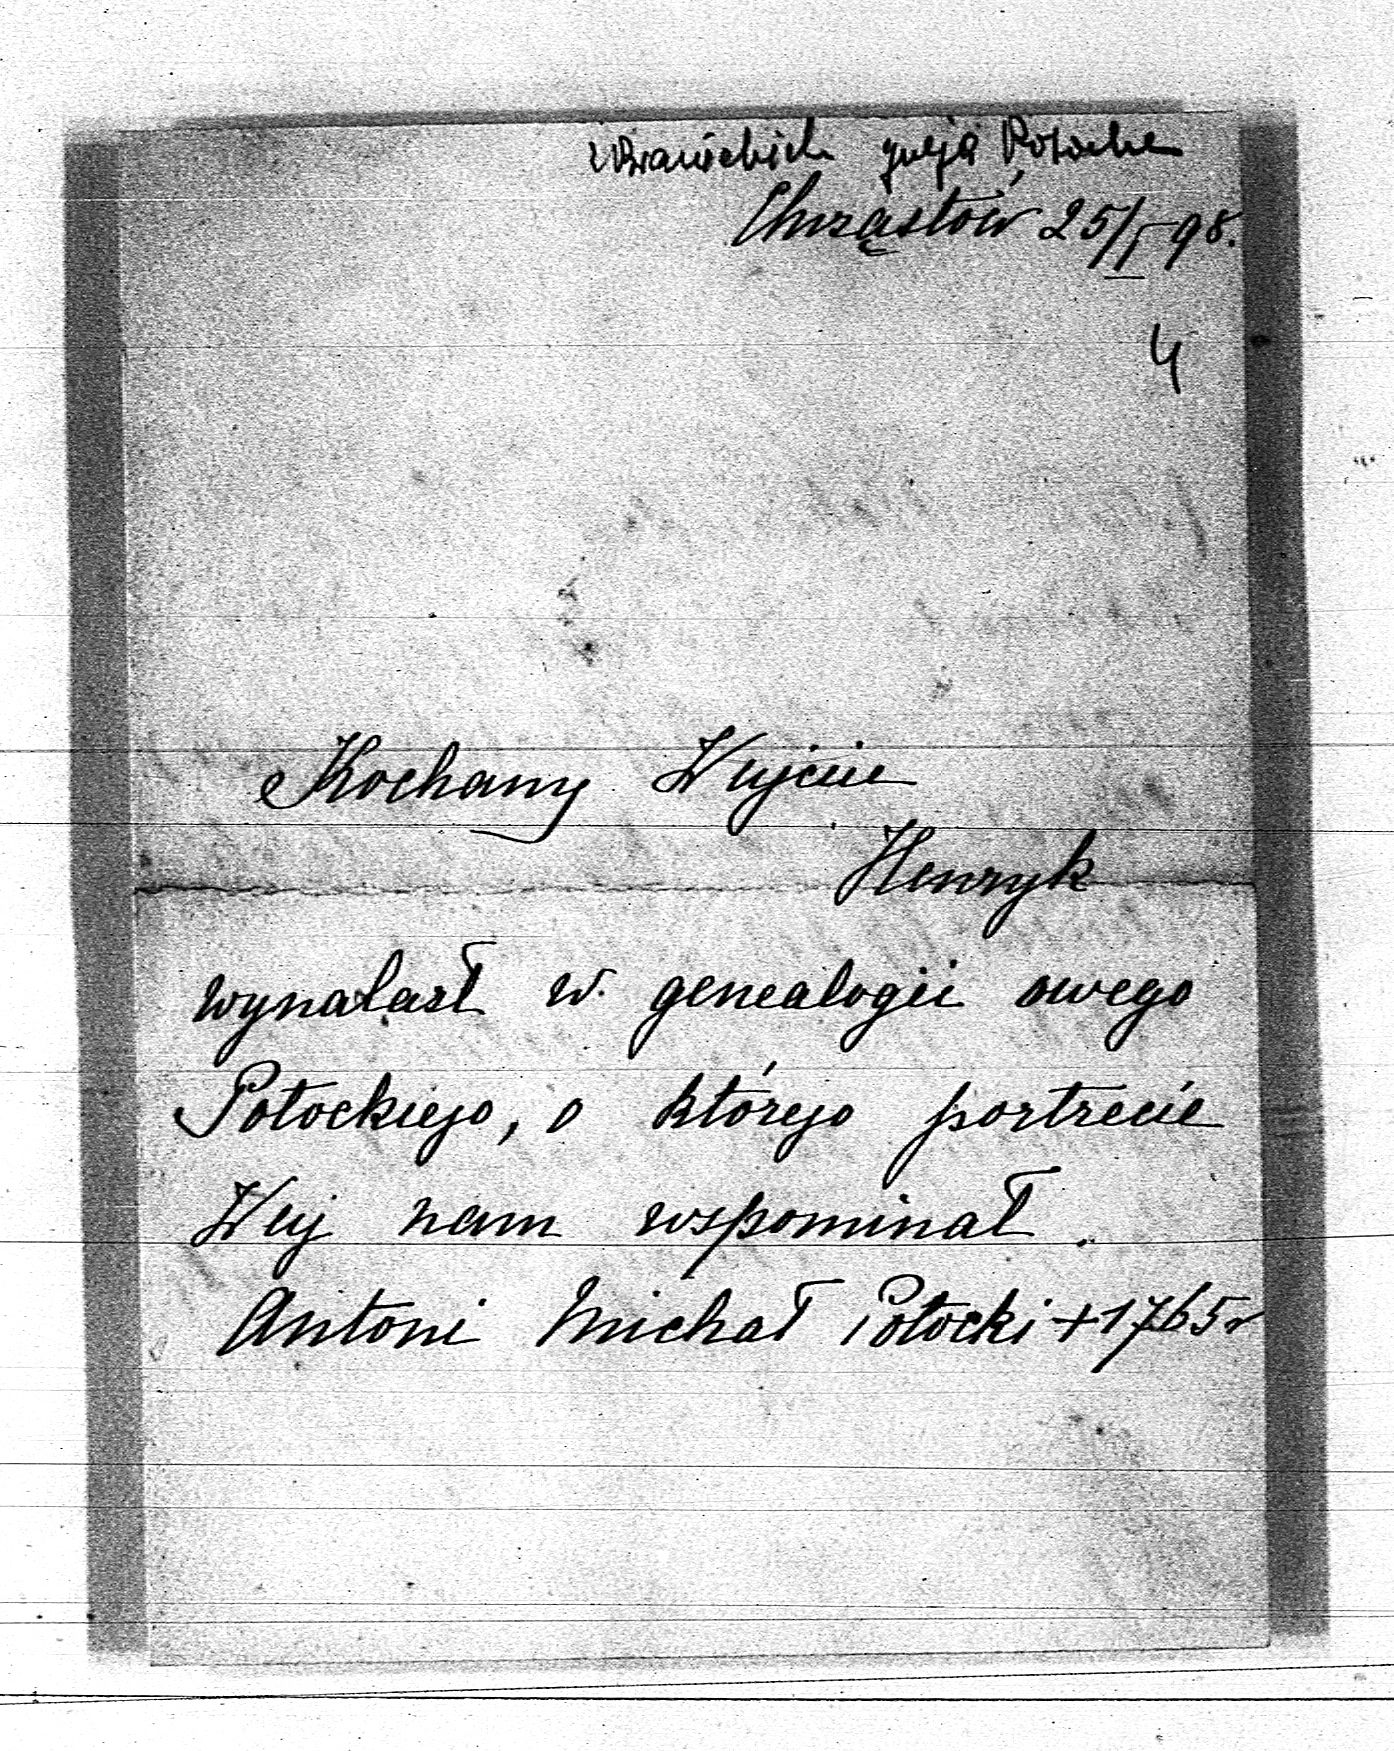 z Branickich Julja Potocka
Chrząstów 25/I 98.
4
Kochany Wujciu
Henryk
wynalazł w genealogii owego
Potockiego, o którego portrecie
Wuj nam wspominał.
Antoni Michał Potocki +1765r